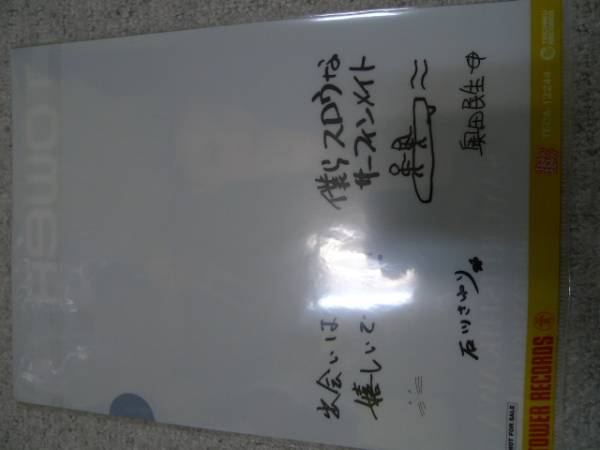 TOWER
出会いは
嬉しいで
僕らスロウな
サーフィンメイト
石川さゆり
奥田民生
NOT FOR SALE
TOWER RECORDS